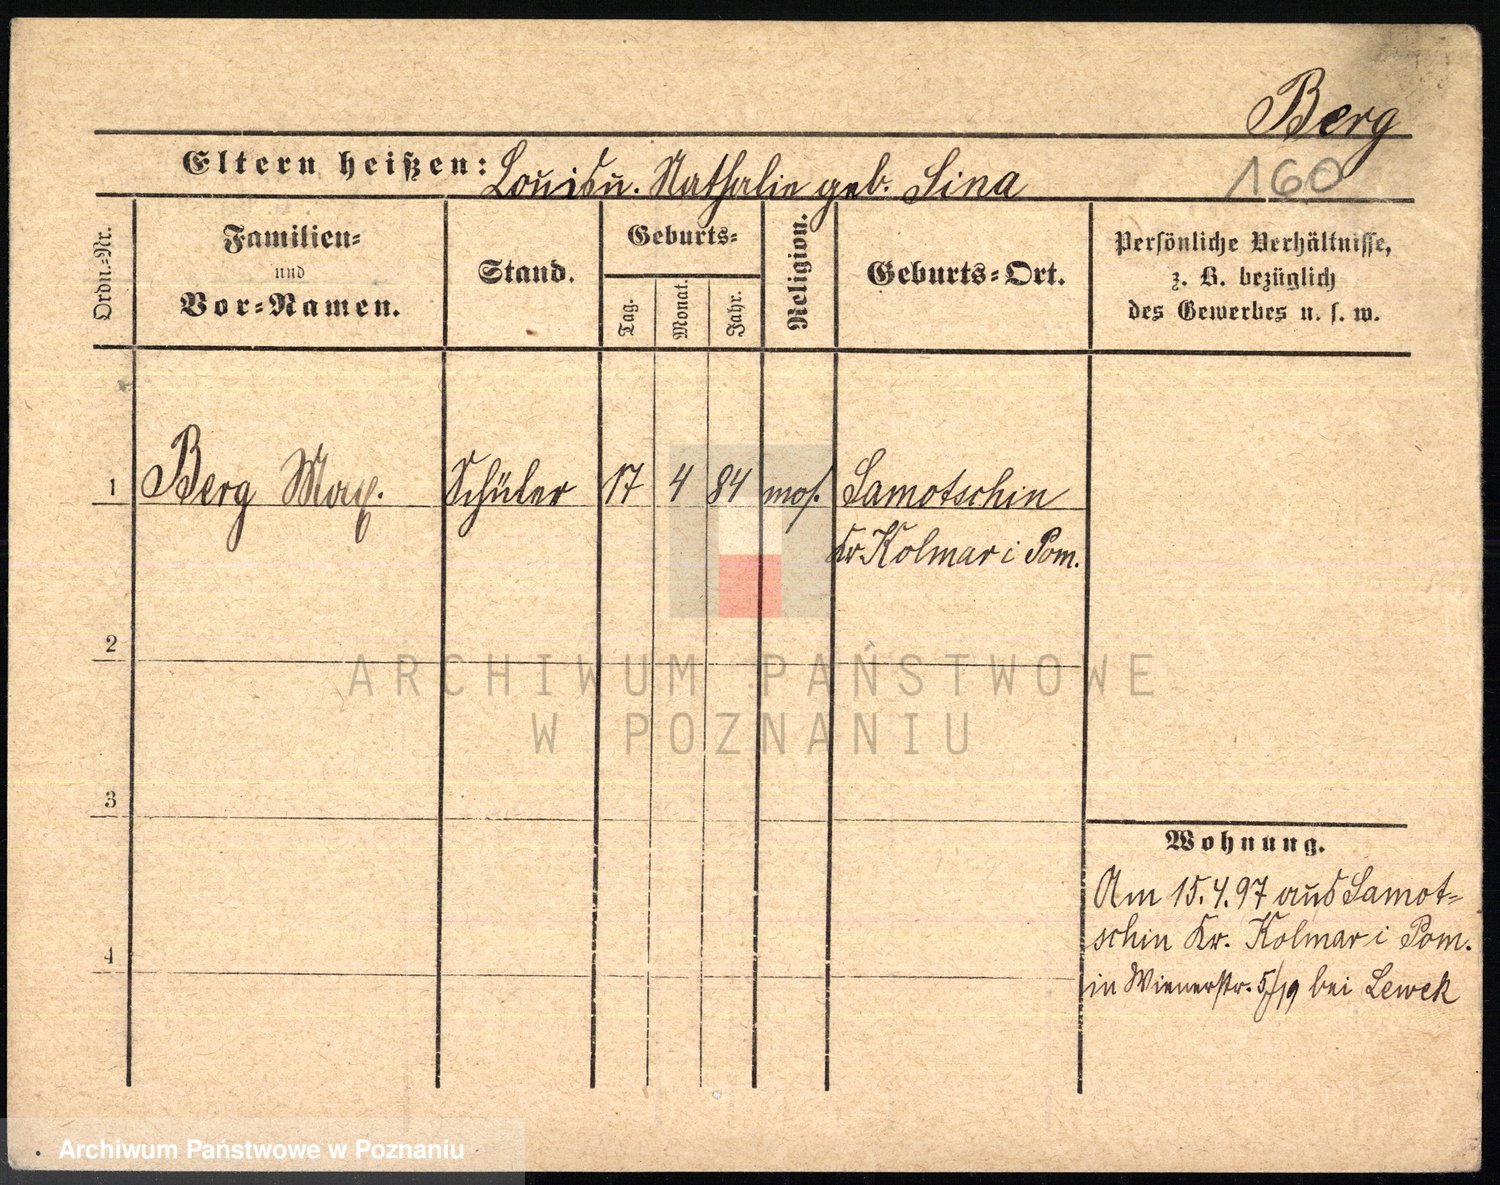 Berg
160
Eltern heißen: Louis u. Nathalie geb. Sina
Ordn.-Nr.
Familien-
und
Vor-Namen.
Stand.
Geburts-
Tag.
Monat.
Jahr.
Religion.
Geburts-Ort.
Persönliche Verhältnisse,
z. B. bezüglich
des Gewerbes u. s. w.
1 Berg Max. Schüler 17 4 84 mos. Samotschin
Kr. Kolmar i Pom.
2
3
4
Wohnung.
Am 15.4.97 aus Samot-
schin Kr. Kolmar i Pom.
in Wienerstr. 5/19 bei Lewek
ARCHIWUM PAŃSTWOWE
W POZNANIU
Archiwum Państwowe w Poznaniu